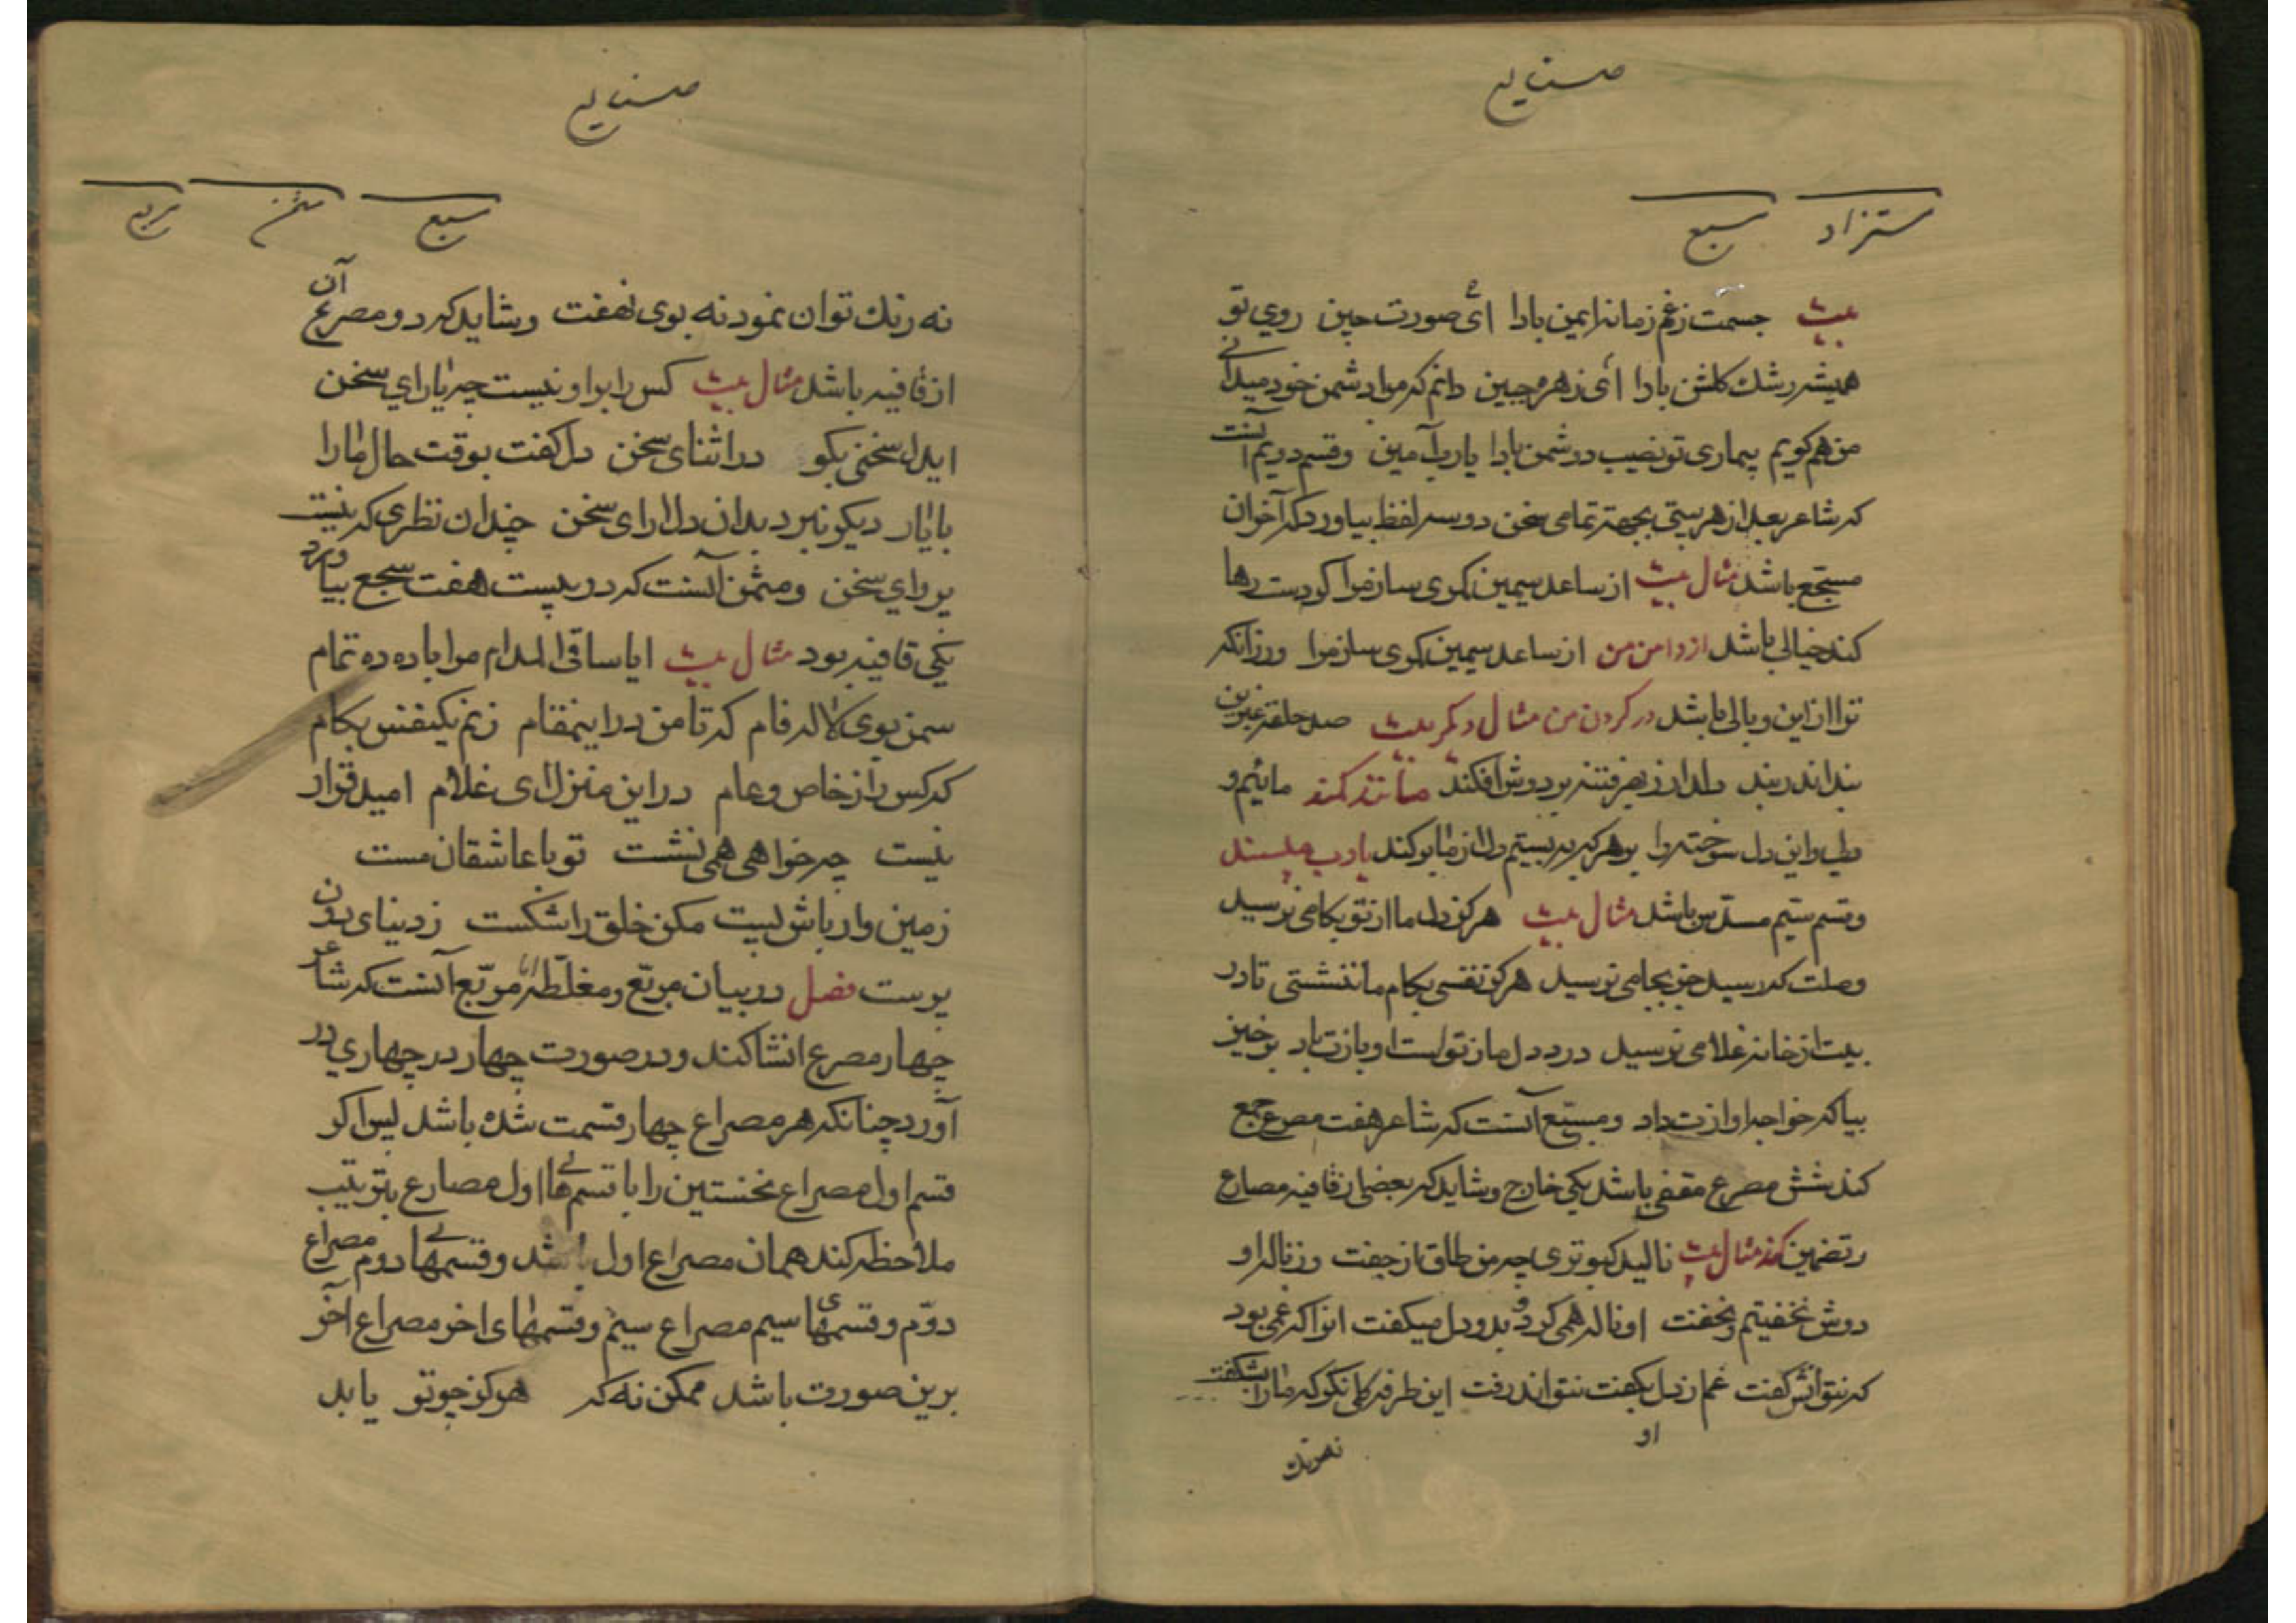 صنایع
مستزاد مسبع
بیت جسمت زغم زمانه ایمن بادا ای صورت چین روی تو
همیشه رشك كلشن بادا ای زهره جبین دانم که مرا دشمن خود میدانی
من هم کویم بیماری تو نصیب دشمن بادا یارب آمین وقسم دویم آنست
که شاعر بعد از هر بیتی بجهة تمامی سخن دو سه لفظ بیاورد که آخر ان
مسجع باشد مثال بیت از ساعد سیمین کمری ساز مرا کر دست رها
کند خیالی باشد از دامن من از ساعد سیمین کمری ساز مرا ورزانکه
ترا ازین وبالی باشد در کردن من مثال دیکر بیت صد حلقه عنبرین
بند اندر بند دلدار ز بهر فتنه بر دوش افکند مانند کمند مائیم و
دلی واین دل سوخته را بر هر که ببستیم دل از ما برکند یارب مپسند
وقسم سیم مسدس باشد مثال بیت هرکز دل ما از تو بکامی نرسید
وصلت که رسید جز بجامی نرسید هرکز نفسی بکام ما ننشستی تا در
بیت از خانه غلامی نرسید درد دل ما ز تو است او باز ت باد برخیز
بیا که خواجه اوازت داد ومسبع آنست که شاعر هفت مصرع جمع
کند شش مصرع مقفی باشد یکی خارج وشاید که بعضی از قافیه مصارع
رتضمین کند مثال بیت نالید کبوتری چو من طاق از جفت وز ناله او
دوش نخفتیم ونخفت او ناله همی کرد و بدو دل میکفت انرا که غمی بود
که نتوانش کفت غم از دل بکفت نتواند رفت این طرفه کلی نکر که ما را بشکفت
او
نه رنك
صنایع
مسبع مثمن مربع
نه رنك توان نمود نه بوی نهفت وشاید که دو مصرع آن
از قافیه باشد مثال بیت کس را بر او نیست چه یارای سخن
ایدل سخنی بکو در اثنای سخن دل کفت بوقت حال ما را
با یار دیکو نبرد بدان دلارای سخن چندان نظری که نیست
پروای سخن ومثمن آنست که در بیست هفت سجع بیاورد
یکی قافیه بود مثال بیت ایا ساقی المدام مرا باده ده تمام
سمن بوی لاله فام که تا من در اینمقام زنم یکنفس بکام
که کس را ز خاص وعام در این منزل ای غلام امید قرار
نیست چه خواهی همی نشست تو با عاشقان مست
زمین وار باش پست مکن خلق را شکست ز دنیای دون
پرست فصل در بیان مربع ومغلطه اما مربع آنست که شاعر
چهار مصرع انشا کند ودر صورت چهار در چهاری در
آورد چنانکه هر مصراع چهار قسمت شده باشد پس اکر
قسم اول مصراع نخستین را با قسمهای اول مصارع بترتیب
ملاحظه کند همان مصراع اول باشد وقسمهای دوم مصراع
دوّم وقسمهای سیم مصراع سیم وقسمهای اخر مصراع آخر
برین صورت باشد ممکن نه که هرکز چو تو یابد